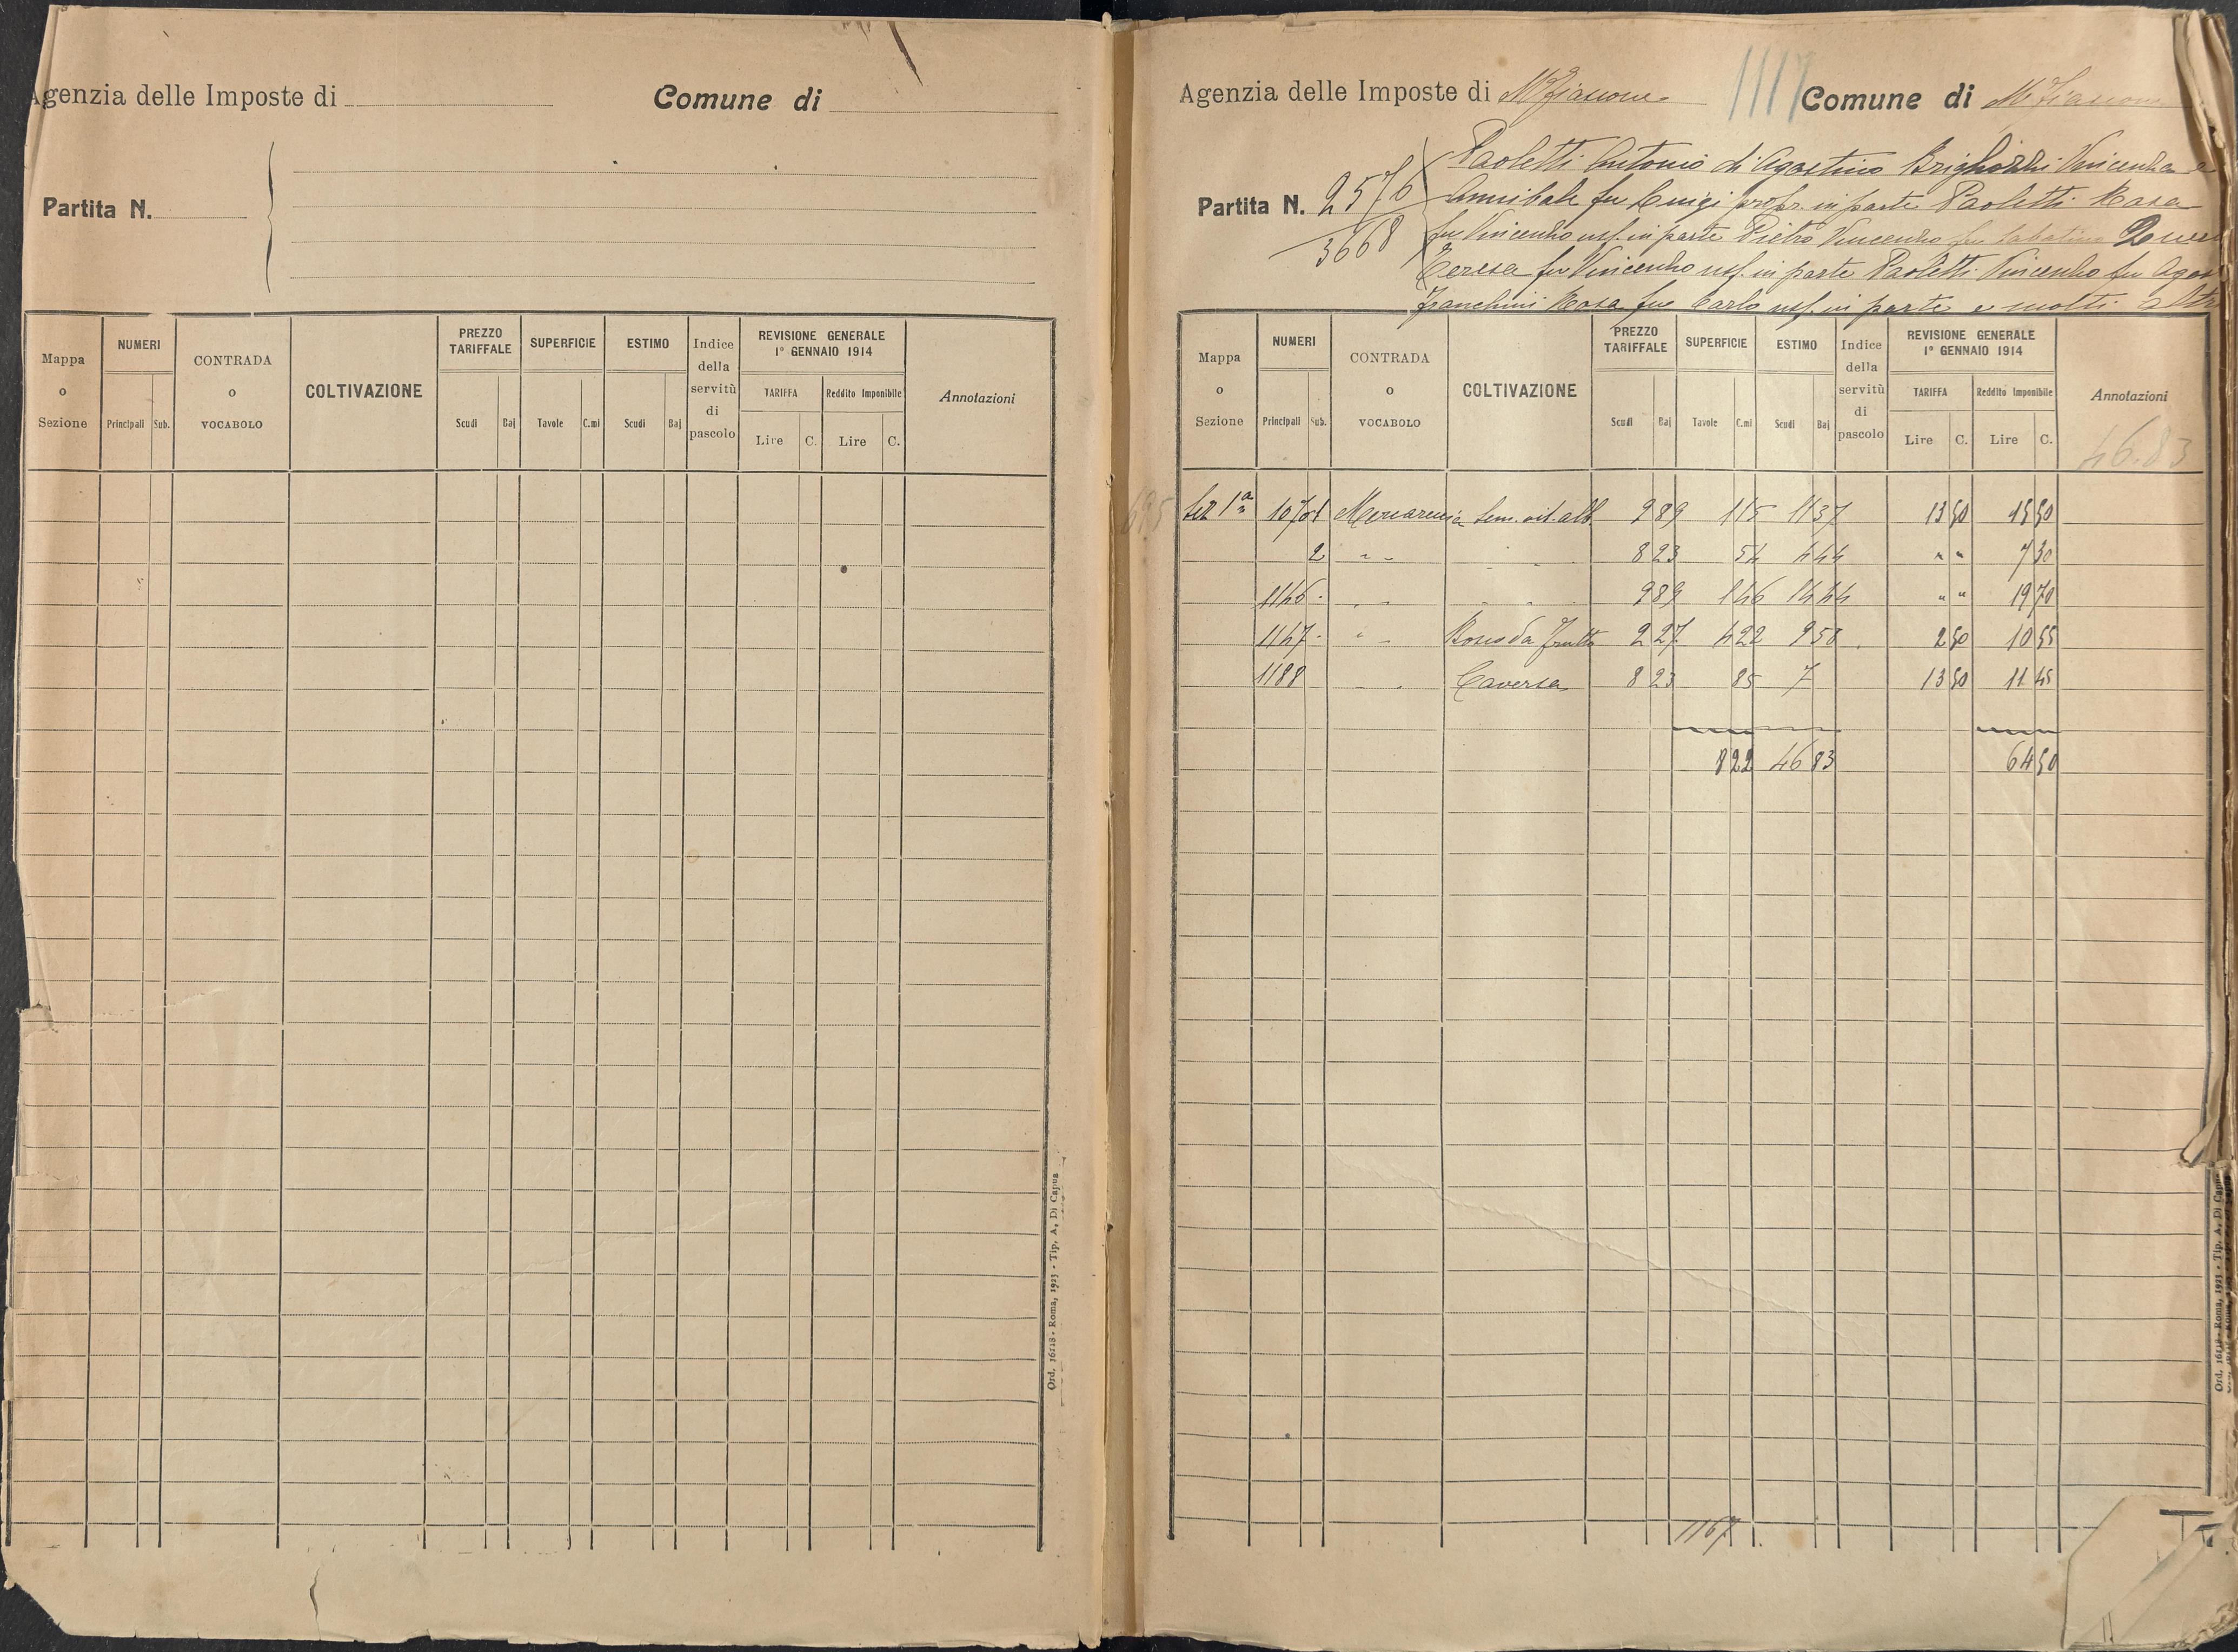 Agenzia delle Imposte di
Comune di
Partita N.
Mappa o Sezione
NUMERI
Principali Sub.
CONTRADA o VOCABOLO
COLTIVAZIONE
PREZZO TARIFFALE
Scudi Baj
SUPERFICIE
Tavole C.mi
ESTIMO
Scudi Baj
Indice della servitù di pascolo
REVISIONE GENERALE
1° GENNAIO 1914
TARIFFA Reddito Imponibile
Lire C. Lire C.
Annotazioni
Ord. 16128 - Roma, 1923 - Tip. A. Di Capua
Agenzia delle Imposte di
1117
Comune di
Partita N. 2576
3668
Paoletti Antonio di Agostino Vincenzo e
Annibale fu Luigi propr. in parte Paoletti Rosa
fu Vincenzo usf. in parte Pietro Vincenzo fu Sabatino
Teresa fu Vincenzo usf. in parte Paoletti Vincenzo fu Agos
Franchini Rosa fu Carlo usf. in parte e molti altri
Mappa o Sezione
NUMERI
Principali Sub.
CONTRADA o VOCABOLO
COLTIVAZIONE
PREZZO TARIFFALE
Scudi Baj
SUPERFICIE
Tavole C.mi
ESTIMO
Scudi Baj
Indice della servitù di pascolo
REVISIONE GENERALE
1° GENNAIO 1914
TARIFFA Reddito Imponibile
Lire C. Lire C.
Annotazioni
46.83
Sez 1ª 1070 1 Sem. vit. alb. 9 89 1 15 11 37 13 50 15 50
2 " " 8 23 54 4 44 " " 7 30
1146 9 89 1 46 14 44 " " 19 70
1147 " Bosco da frutto 2 27 4 22 9 58 2 50 10 55
1188 8 23 85 7 13 50 11 45
8 22 46 83 64 50
1167
Ord. 16128 - Roma, 1923 - Tip. A. Di Capua